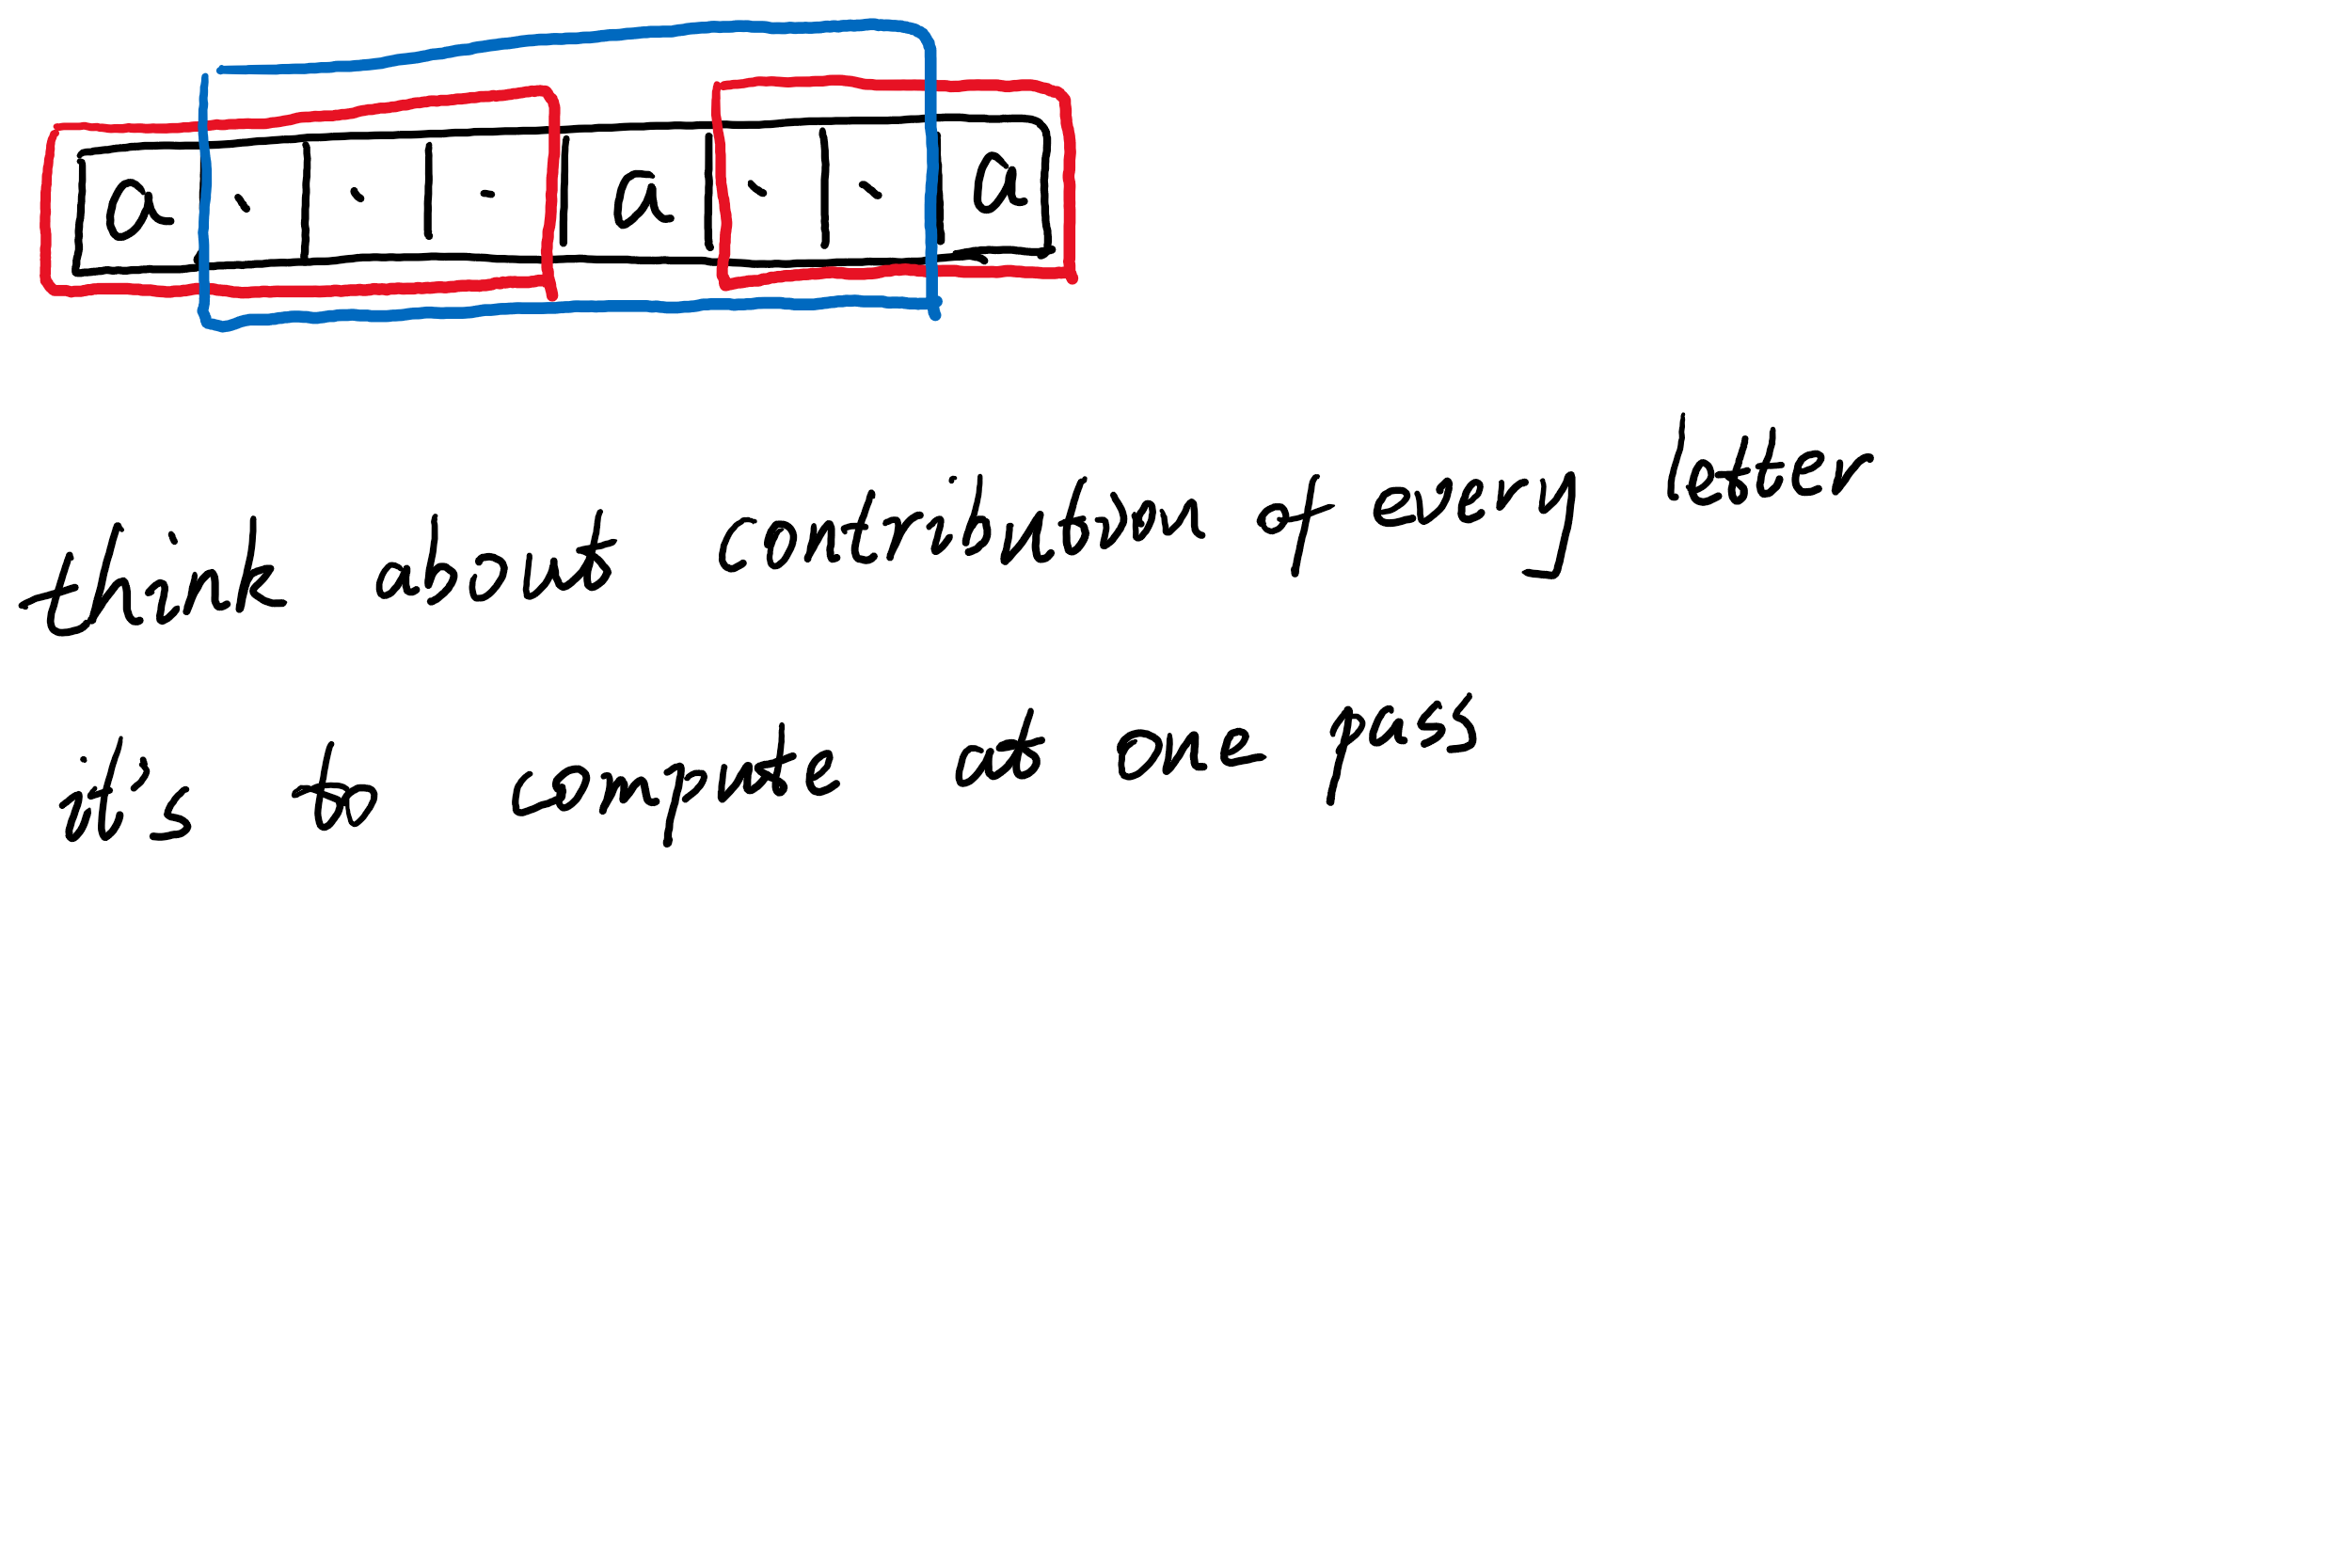 a · · · a · · a
think about contribution of every letter
it's to compute at one pass